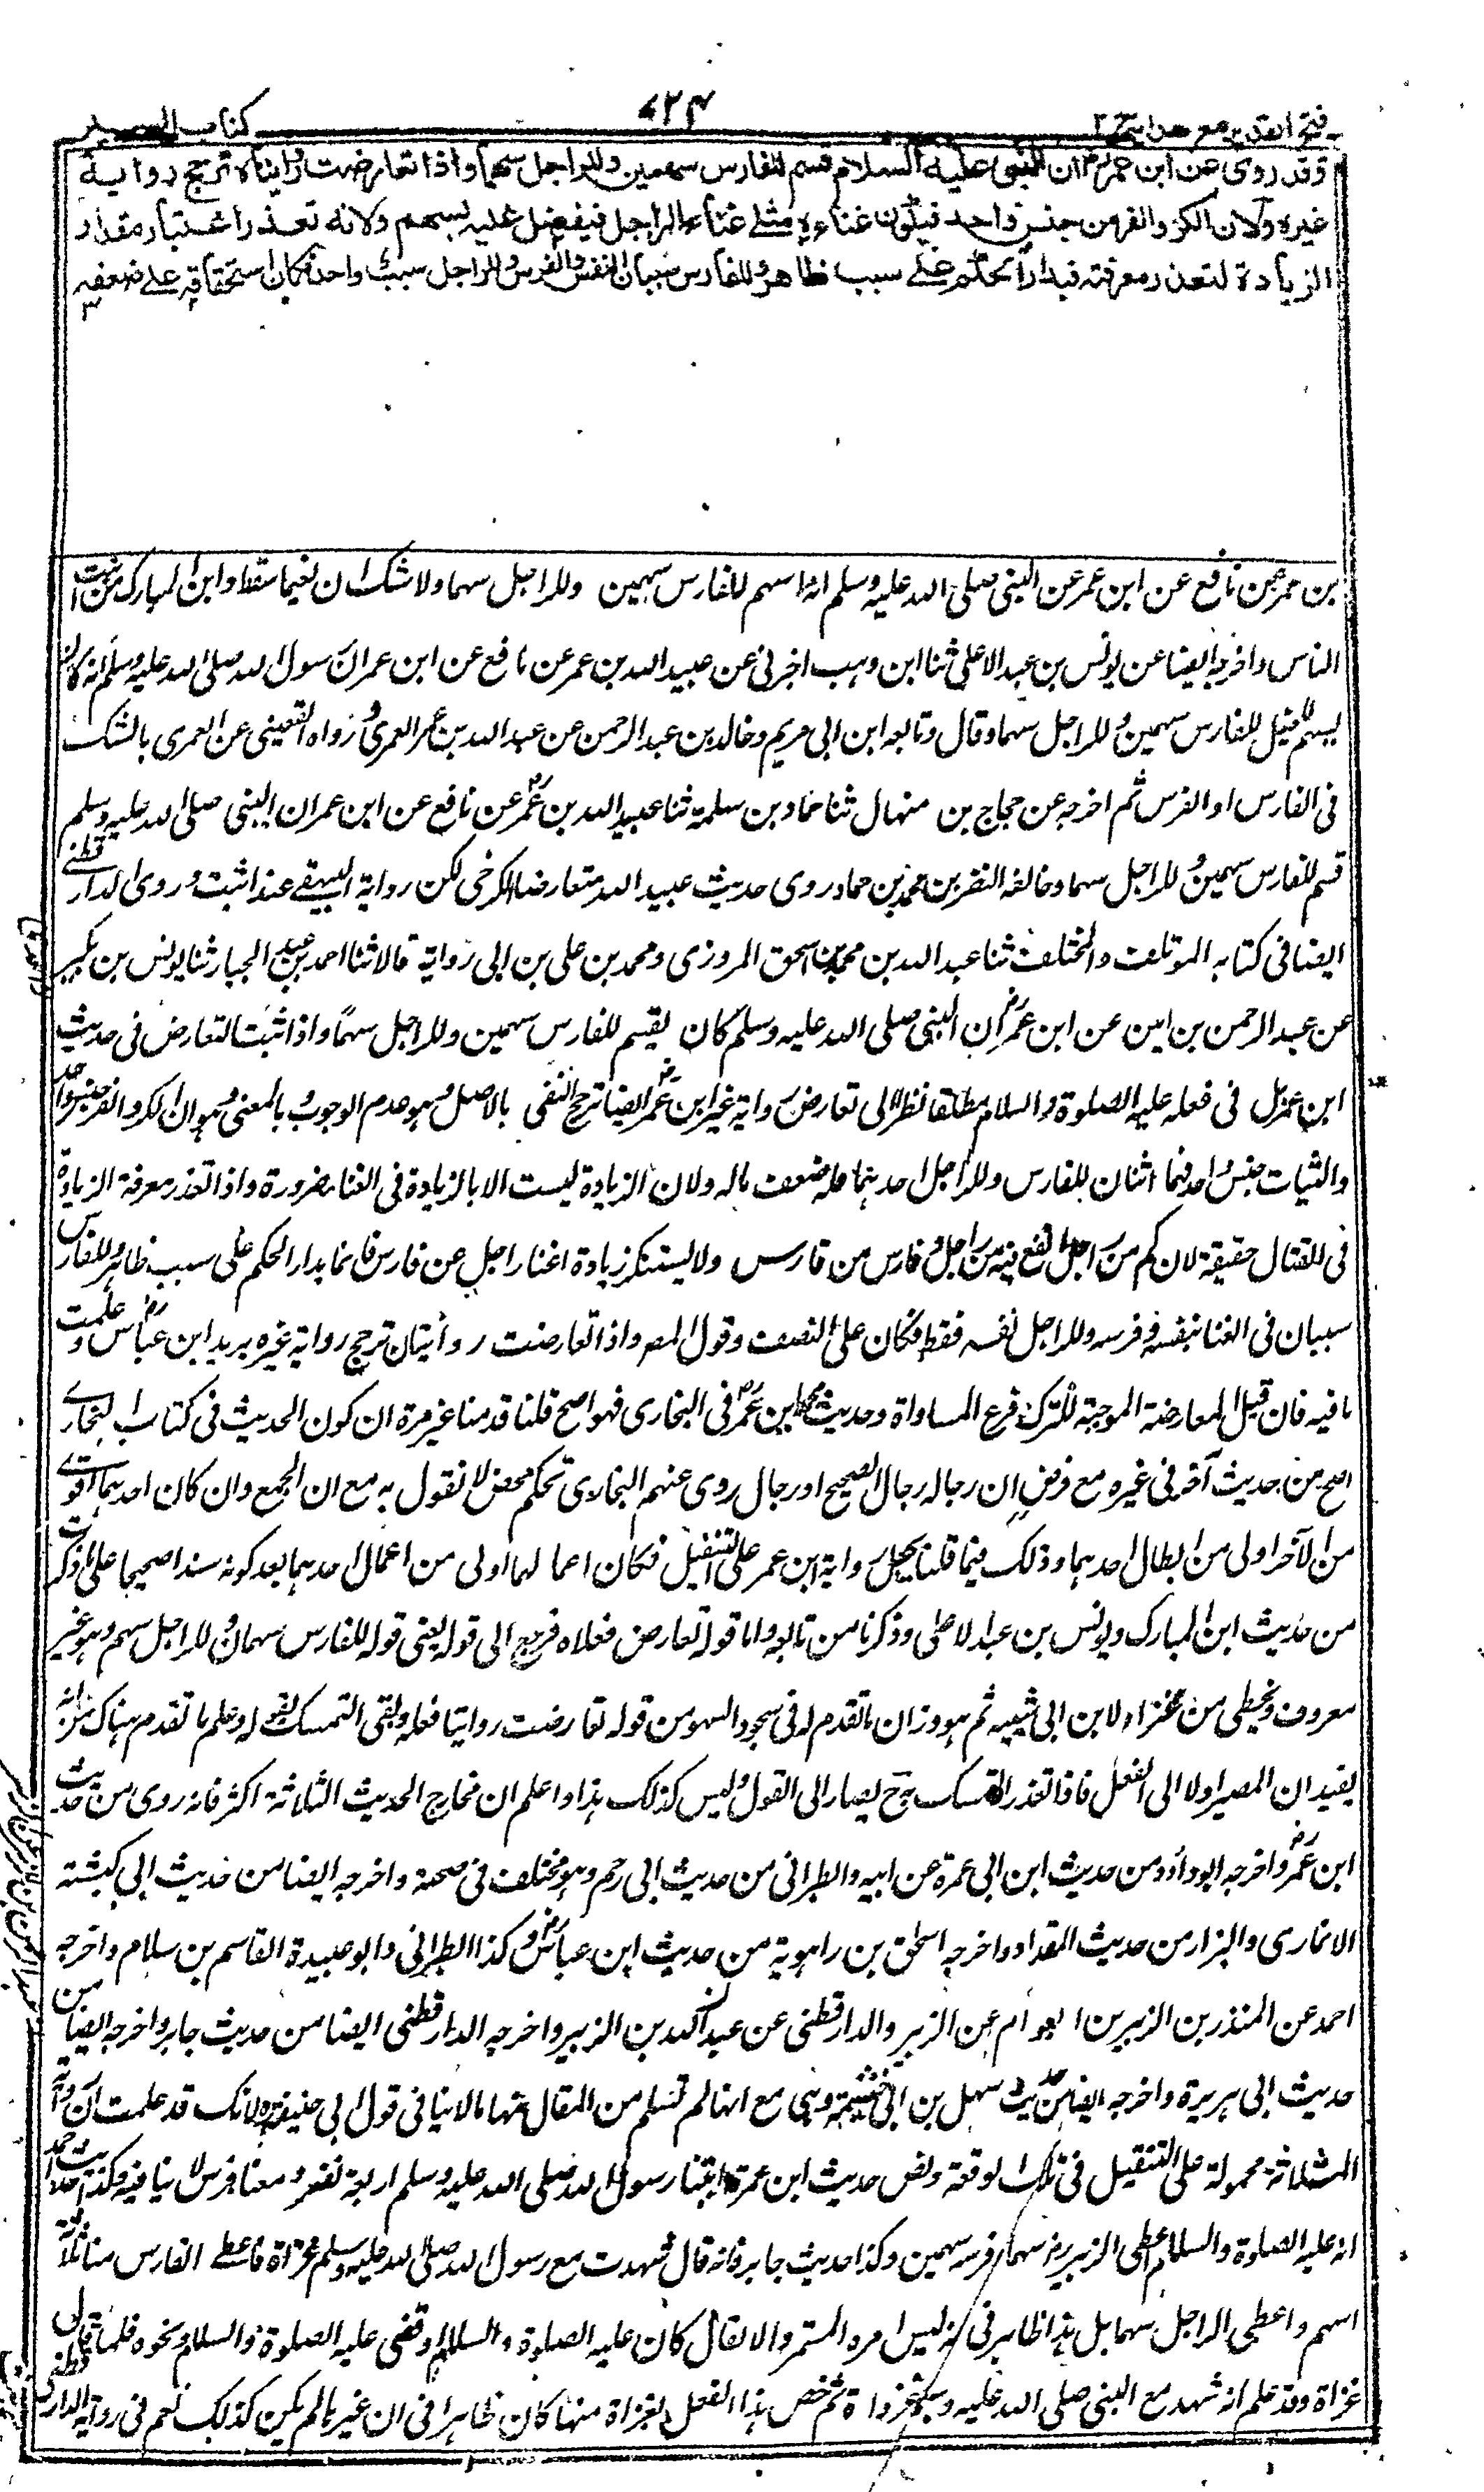 فتح القدير مع هدايه ج ٢
٧٢٤
كتاب السير
وقد روى عن ابن عمر رض ان النبى عليه السلام قسم للفارس سهمين وللراجل سهما واذا تعارضت روايتاه ترجح رواية
غيره ولان الكر والفر من جنس واحد فيكون غناءه مثلے غناء الراجل فيفضل عليه بسهم ولانه تعذر اعتبار مقدار
الزيادة لتعذر معرفته فيدار الحكم علے سبب ظاهر وللفارس سببان النفس والفرس وللراجل سبب واحد فكان استحقاقه علے ضعفه
بن عمر عن نافع عن ابن عمر عن النبى صلى الله عليه وسلم انه اسهم للفارس سهمين وللراجل سهما ولا شك ان نعيما ثقة وابن المبارك من اثبت
الناس واخرجه ايضا عن يونس بن عبد الاعلى ثنا ابن وهب اخبرنى عن عبيد الله بن عمر عن نافع عن ابن عمر ان رسول الله صلى الله عليه وسلم انه كان
يسهم للخيل للفارس سهمين وللراجل سهما وقال وتابعه ابن ابى مريم وخالد بن عبد الرحمن عن عبد الله بن عمر العمرى ورواه القعينى عن العمرى بالشك
فى الفارس او الفرس ثم اخرجه عن حجاج بن منهال ثنا حماد بن سلمة ثنا عبيد الله بن عمر رض عن نافع عن ابن عمر ان النبى صلى الله عليه وسلم
قسم للفارس سهمين وللراجل سهما وخالفه النضر بن محمد بن حماد وروى حديث عبيد الله متعارضا الكرخى لكن رواية البيهقے عنه اثبت وروى الدارقطنے
ايضا فى كتابه الموتلف والمختلف ثنا عبد الله بن محمد بن اسحق المروزى ومحمد بن على بن ابى رواية قالا ثنا احمد بن عبد الجبار ثنا يونس بن بكير
عن عبد الرحمن بن امين عن ابن عمر رض ان النبى صلى الله عليه وسلم كان يقسم للفارس سهمين وللراجل سهمًا واذا ثبت التعارض فى حديث
ابن عمر بل فى فعله عليه الصلوة والسلام مطلقا نظرا الى تعارض رواية غير ابن عمر رض ايضا ترجح النفى بالاصل وهو عدم الوجوب وبالمعنى وهو ان الكر والفر جنس واحد
والثبات جنس واحد فهما اثنان للفارس وللراجل احدهما فله ضعف ماله ولان الزيادة ليست الا بالزيادة فى الغنا ضرورة واذا تعذر معرفة الزيادة
فى القتال حقيقة لان كم من راجل انفع فيه من راجل وفارس من فارس ولا يستنكر زيادة اغناء راجل عن فارس فانما يدار الحكم على سبب ظاهر وللفارس
سببان فى الغنا نفسه وفرسه وللراجل نفسه فقط فكان على النصف وقول المصر واذا تعارضت روايتان ترجح رواية غيره يريد ابن عباس رض و علمت
ما فيه فان قيل المعارضة الموجبة للترك فرع المساواة وحديث ابن عمر رض فى البخارى فهو اصح قلنا قدمنا غير مرة ان كون الحديث فى كتاب البخارے
اصح من حديث آخر فى غيره مع فرض ان رجاله رجال الصحيح او رجال روى عنهم البخارى تحكم محض لا نقول به مع ان الجمع وان كان احدهما اقوے
من الآخر اولى من ابطال احدهما وذلك فيما قلنا بحمل رواية ابن عمر على التنفيل فكان اعمالهما اولى من اعمال احدهما بعد كونه سندا صحيحا على ما ذكرت
من حديث ابن المبارك ويونس بن عبد الاعلى وذكرنا من تابعه واما قوله تعارض فعلاه فرجع الى قوله يعنى قوله للفارس سهمان وللراجل سهم وهو غير
معروف ويخطى من عزاه لابن ابى شيبه ثم هو وزان ما تقدم له فى سجود السهو من قوله تعارضت روايتا فعله وبقى التمسك بقوله وعلم ما تقدم هناك من انه
يفيد ان المصير اولا الى الفعل فاذا تعذر التمسك به ح يصار الى القول وليس كذلك هذا واعلم ان مخارج الحديث الثلاثة اكثر فانه روى من حديث
ابن عمر رض واخرجه ابوداؤد من حديث ابن ابى عمرة عن ابيه والطبرانى من حديث ابى رهم وهو مختلف فى صحبته واخرجه ايضا من حديث ابى كبشة
الانمارى والبزار من حديث المقداد واخرجه اسحق بن راهوية من حديث ابن عباس رض وكذا الطبرانى وابو عبيدة القاسم بن سلام واخرجه
احمد عن المنذر بن الزبير بن العوام عن الزبير والدارقطنى عن عبد الله بن الزبير واخرجه الدارقطنى ايضا من حديث جابر واخرجه ايضا من
حديث ابى هريرة واخرجه ايضا من حديث سهل بن ابى خثيمة وهى مع انها لم تسلم من المقال منها ما لا ينافى قول ابى حنيفة رح لانك قد علمت ان رواية
الثلاثة محمولة على التنفيل فى تلك الوقعة ونص حديث ابن عمرة اتينا رسول الله صلى الله عليه وسلم اربعة نفر و معنا فرس لا ينافيه وكذا حديث احمد
انه عليه الصلوة والسلام اعطى الزبير رض سهما وفرسه سهمين وكذا حديث جابر فانه قال شهدت مع رسول الله صلى الله عليه وسلم غزاة فاعطے الفارس منا ثلاثة
اسهم واعطى الراجل سهما بل هذا ظاهر فى انه ليس امره المستمر والا لقال كان عليه الصلوة والسلام او قضى عليه الصلوة والسلام ونحوه فلما قال
غزاة وقد علم انه شهد مع النبى صلى الله عليه وسلم غزوات ثم خص هذا الفعل بغزاة منها كان ظاهرا فى ان غيرها لم يكن كذلك نعم فى رواية الدارقطنى